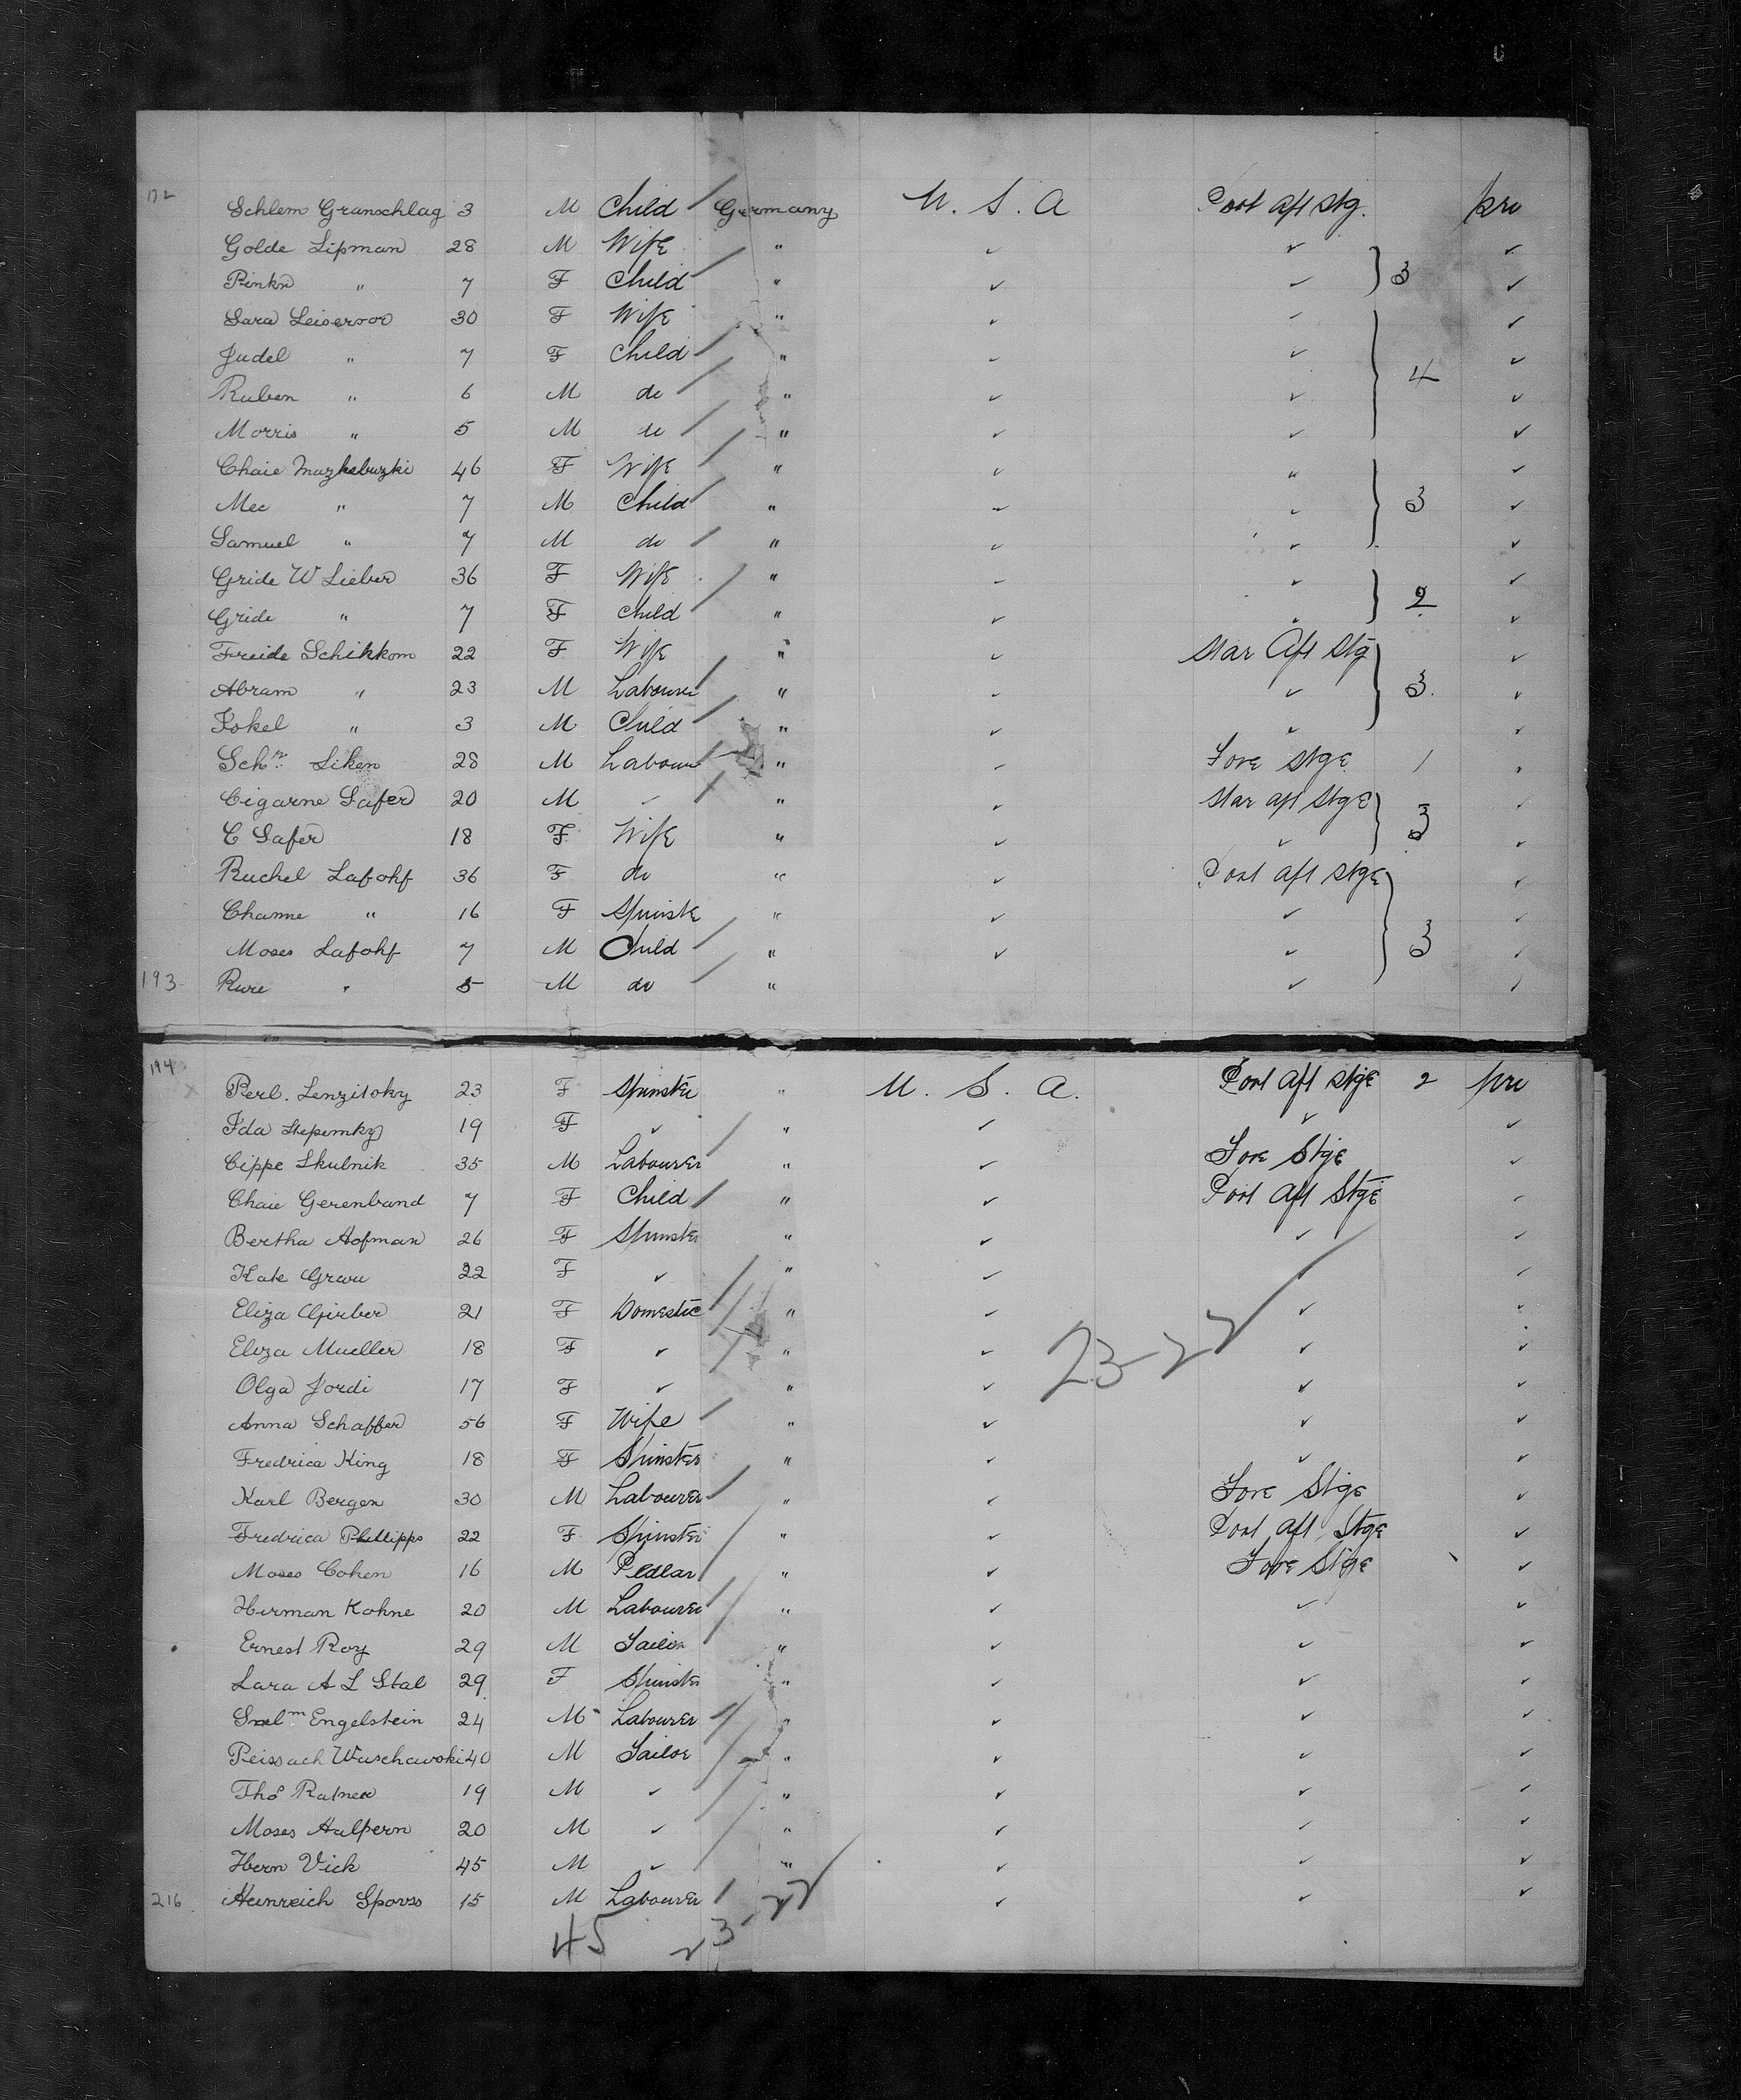 172 Schlem Granschlag 3 M Child Germany U. S. A Port aft stg. pro
Golde Lipman 28 M Wife " ✓ ✓ ✓
Pinkn " 7 F Child " ✓ ✓ } 3 ✓
Sara Leiseroor 30 F Wife " ✓ ✓ ✓
Judel " 7 F Child " ✓ ✓ ✓
Ruben " 6 M do " ✓ ✓ } 4 ✓
Morris " 5 M do " ✓ ✓ ✓
Chaie Mazkebuzki 46 F Wife " ✓ " ✓
Mec " 7 M Child " ✓ ✓ } 3 ✓
Samuel " 7 M do " ✓ ✓ ✓
Gride W Lieber 36 F Wife " ✓ ✓ ✓
Gride " 7 F Child " ✓ ✓ } 2 ✓
Freide Schikkom 22 F Wife " ✓ Star Aft Stg ✓
Abram " 23 M Labourer " ✓ ✓ } 3. ✓
Iskel " 3 M Child " ✓ ✓ ✓
Schn. Liken 28 M Labourer " ✓ Fore Stge 1 ✓
Cigarne Safer 20 M ✓ " ✓ Star aft Stge ✓
C Safer 18 F Wife " ✓ ✓ } 3 ✓
Ruchel Lafohf 36 F do " ✓ Port aft stge ✓
Channe " 16 F Spinster " ✓ ✓ ✓
Moses Lafohf 7 M Child " ✓ ✓ } 3 ✓
193 Rure " 5 M do " ✓ ✓
194 Perl. Lenzitoky 23 F Spinster " U. S. A. Port aft stge 2 pro
Ida Stepemky 19 F ✓ " ✓ ✓ ✓
Cippe Skulnik 35 M Labourer " ✓ Fore Stge ✓
Chaie Gerenband 7 F Child " ✓ Port aft Stge ✓
Bertha Hofman 26 F Spinster " ✓ ✓ ✓
Kate Grau 22 F ✓ " ✓ ✓ ✓
Eliza Girber 21 F Domestic " ✓ ✓ ✓
Eliza Mueller 18 F ✓ " ✓ 23-22 ✓ ✓
Olga Jordi 17 F ✓ " ✓ ✓ ✓
Anna Schaffer 56 F Wife " ✓ ✓ ✓
Fredrica King 18 F Spinster " ✓ ✓ ✓
Karl Bergen 30 M Labourer " ✓ Fore Stge ✓
Fredrica Phillipps 22 F Spinster " ✓ Port aft Stge ✓
Moses Cohen 16 M Pedlar " ✓ Fore Stge ✓
Herman Kohne 20 M Labourer " ✓ ✓ ✓
Ernest Roy 29 M Tailor " ✓ ✓ ✓
Lara A L Stal 29 F Spinster " ✓ ✓ ✓
Engelstein 24 M Labourer " ✓ ✓ ✓
Peissach Waschawski 40 M Tailor " ✓ ✓ ✓
Thos Ratner 19 M ✓ " ✓ ✓ ✓
Moses Halpern 20 M ✓ " ✓ ✓ ✓
Hern Vick 45 M ✓ " ✓ ✓ ✓
216 Heinreich Sporss 15 M Labourer ✓ ✓ ✓
45 23-22